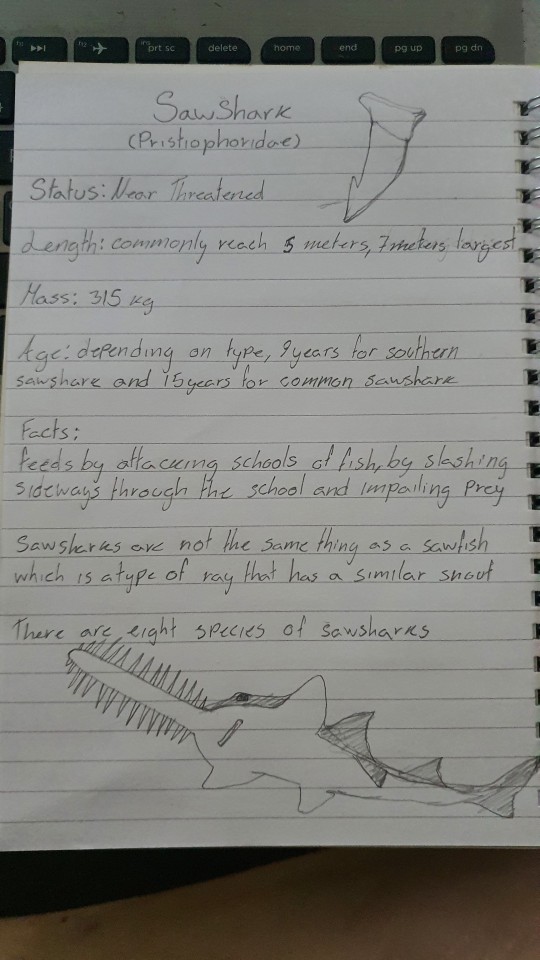 prt sc
delete
home
end
pg up
pg dn
Sawshark
(Pristiophoridae)
Status: Near Threatened
Length: commonly reach 5 meters, 7 meters largest
Mass: 315 kg
Age: depending on type, 9 years for southern
sawshark and 15 years for common sawshark
Facts:
feeds by attacking schools of fish, by slashing
sideways through the school and impailing prey
Sawsharks are not the same thing as a sawfish
which is a type of ray that has a similar snout
There are eight species of sawsharks